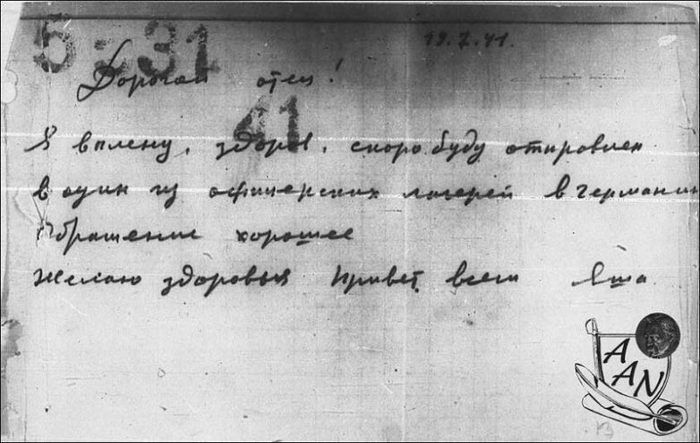 5-31
19.7.41.
Дорогой отец!
41
Я в плену, здоров, скоро буду отправлен
в один из офицерских лагерей в Германии
Обращение хорошее
Желаю здоровья Привет всем Яша
A
AN